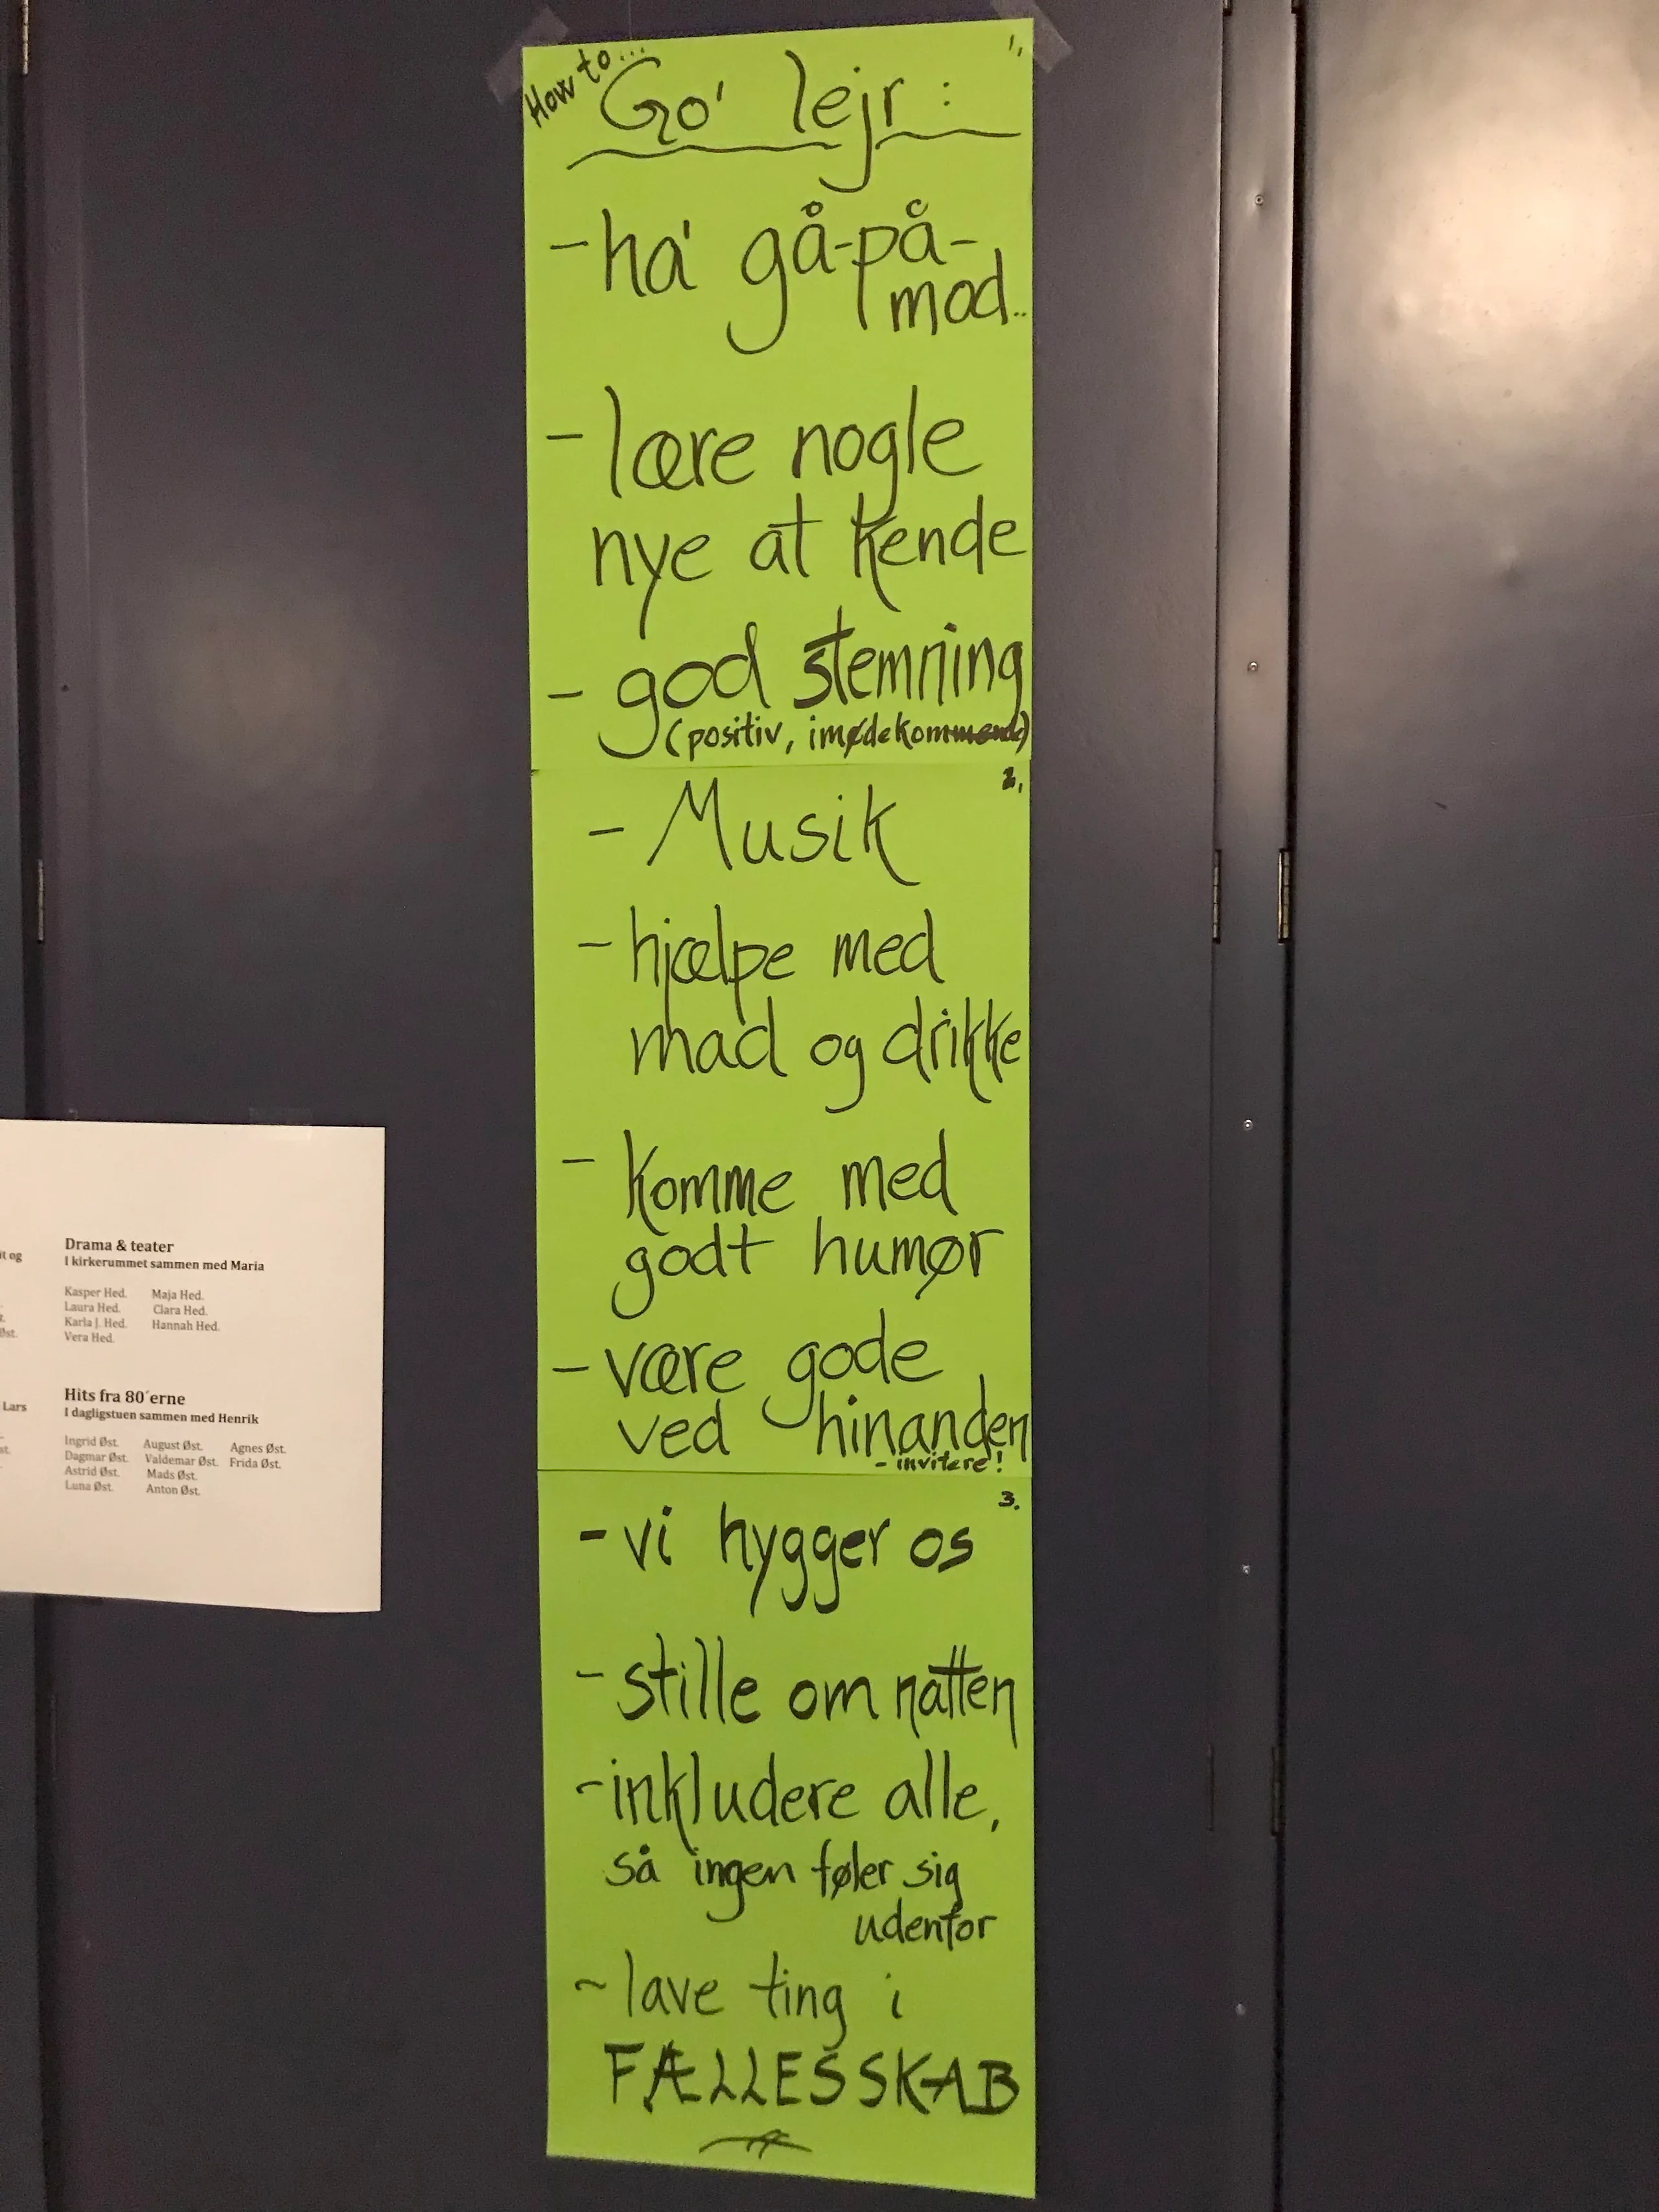 How to...
1,
Go' lejr:
- ha' gå-på-
mod..
- lære nogle
nye at kende
- god stemning
(positiv, imødekommende)
2,
- Musik
- hjælpe med
mad og drikke
- Komme med
godt humør
- være gode
ved hinanden
- invitere!
3.
- vi hygger os
- stille om natten
- inkludere alle,
så ingen føler sig
udenfor
- lave ting i
FÆLLESSKAB
it og
Øst.
Lars
st.
Drama & teater
I kirkerummet sammen med Maria
Kasper Hed. Maja Hed.
Laura Hed. Clara Hed.
Karla J. Hed. Hannah Hed.
Vera Hed.
Hits fra 80´erne
I dagligstuen sammen med Henrik
Ingrid Øst. August Øst. Agnes Øst.
Dagmar Øst. Valdemar Øst. Frida Øst.
Astrid Øst. Mads Øst.
Luna Øst. Anton Øst.